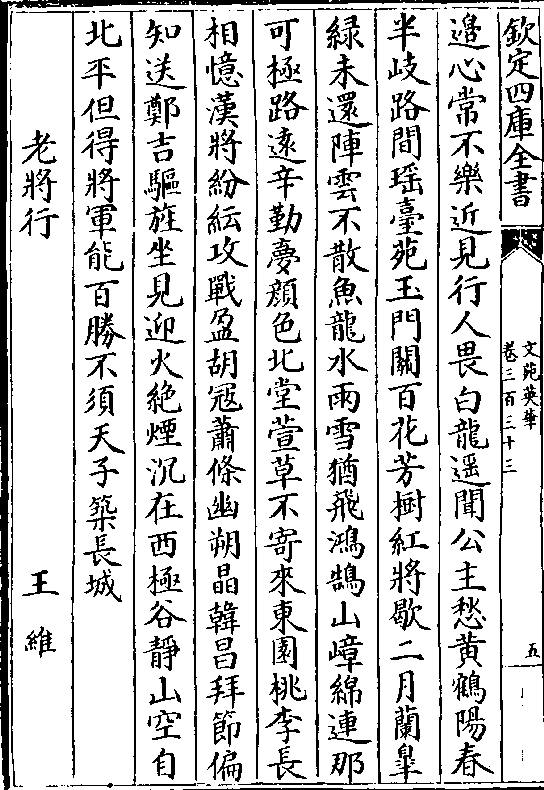 欽定四庫全書
文苑英華
卷三百三十三
五
邉心常不樂近見行人畏白龍遥聞公主愁黄鶴陽春
半岐路間瑶臺苑玉門關百花芳樹紅將歇二月蘭臯
緑未還陣雲不散魚龍水雨雪猶飛鴻鵠山嶂綿連那
可極路遠辛勤夢顔色北堂萱草不寄來東園桃李長
相憶漢將紛紜攻戰盈胡冦蕭條幽朔晶韓昌拜節偏
知送鄭吉驅旌坐見迎火絶煙沉在西極谷靜山空自
北平但得將軍能百勝不須天子築長城
老將行
王維